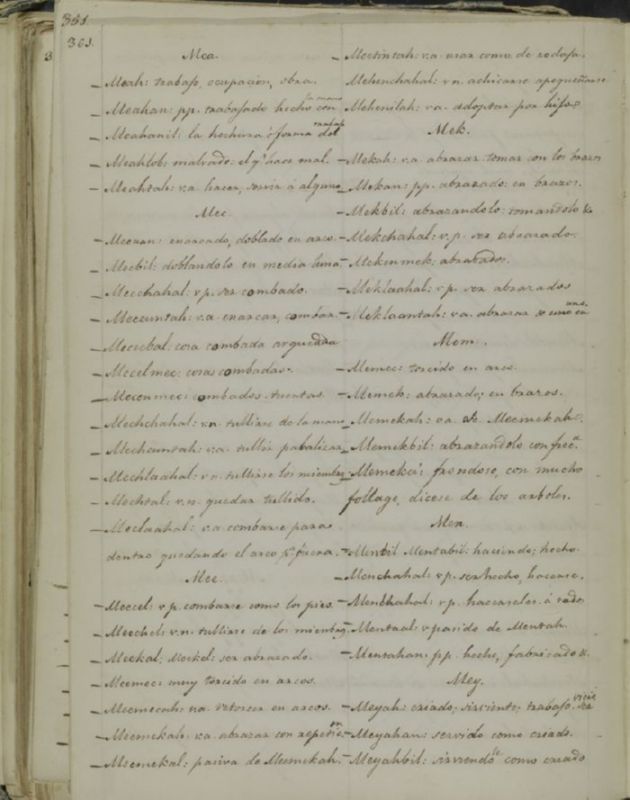 351
361.
Mea.
Meah: trabajo, ocupacion, obra.
Meahan: pp. trabajado hecho con la mano
Meahanil: la hechura ó forma del trabajo
Meahlob: malvado: el qe hace mal.
Meahtah: v.a. hacer, servir á alguno
Mec.
Mecaan: enarcado, doblado en arco.
Mecbil: doblandolo en media luna.
Mecchahal: v.p. ser combado.
Meccuntah: v.a. enarcar, combar.
Mececbal: cosa combada arqueada
Mecelmec: cosas combadas.
Meconmec: combados. tuertas.
Mechchahal: v.n. tullirse de la mano
Mechcuntah: v.a. tullir paralizar
Mechlaahal: v.n. tullirse los miembros
Mechtal: v.n. quedar tullido.
Meclaahal: v.a. combarse para
dentro quedando el arco pa. fuera.
Mee.
Meecel: v.p. combarse como los pies
Meechel: v.n. tullirse de los miembros
Meekal; Meekel: ser abrazado.
Meemec: muy torcido en arcos.
Meemecah: v.a. retorcer en arcos.
Meemekah: v.a. abrazar con repeticion
Meemekal: pasiva de Meemekah.
Mectintah: v.a. usar como de rodaja.
Mehenchahal: v.n. achicarse apequeñarse
Mehenilah: v.a. adoptar por hijo.
Mek.
Mekah: v.a. abrazar tomar con los brazos
Mekan: pp. abrazado: en brazos.
Mekbil: abrazandolo: tomandolo &
Mekchahal: v.p. ser abrazado.
Mekenmek: abrazados.
Meklaahal: v.p. ser abrazados
Meklaantah: v.a. abrazar de uno en uno.
Mem.
Memec: torcido en arco.
Memek: abrazado; en brazos.
Memekah: v.a. Meemekah.
Memekbil: abrazandolo con frec.a
Memeká: frondoso, con mucho
follage, dicese de los arboles.
Men.
Menbil Mentabil: haciendo; hecho.
Menchahal: v.p. ser hecho, hacerse.
Menchahal: v.p. á todo
Mentaal: v. pasivo de Mentah.
Mentahan: pp. hecho, fabricado &.
Mey.
Meyah: criado; sirviente; trabajo. servir
Meyahan: servido como criado.
Meyahbil: sirviendole como criado